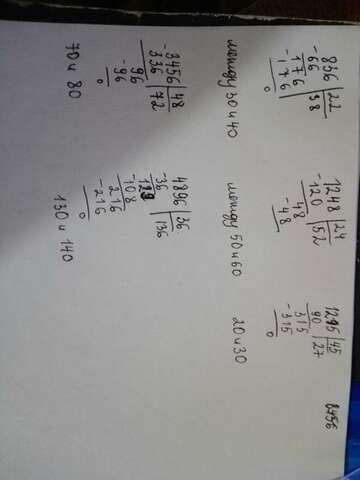 8456
836 22
-66 38
176
-176
0
между 30 и 40
1248 24
-120 52
48
-48
0
между 50 и 60
1215 45
90 27
315
-315
0
20 и 30
-3456 48
336 72
96
-96
0
70 и 80
4896 36
-36 136
-108
216
-216
0
130 и 140